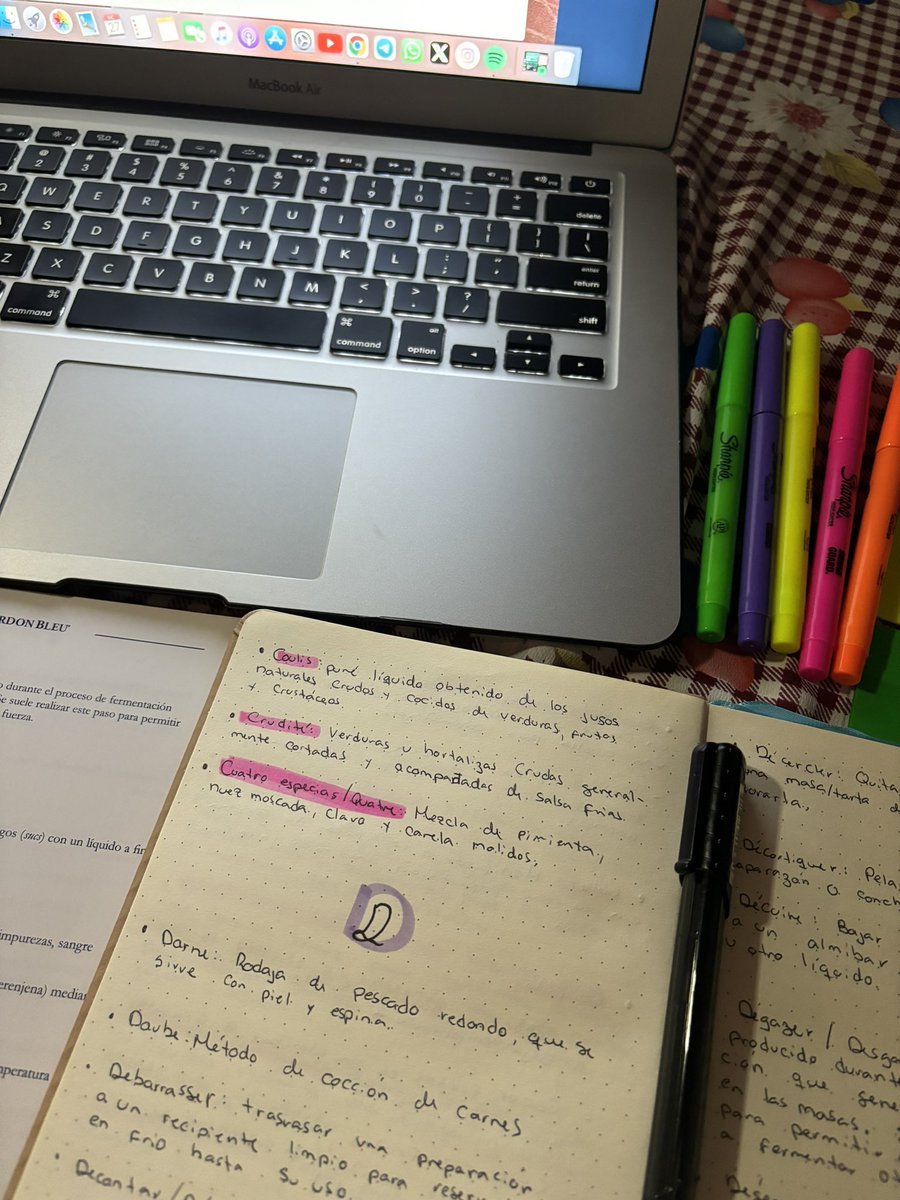 MacBook Air
delete
enter
return
shift
command
command
alt
option
Sharpie
Sharpie
RDON BLEU
o durante el proceso de fermentación
Se suele realizar este paso para permitir
fuerza.
gos (sucs) con un líquido a fin
impurezas, sangre
erenjena) median
mperatura
• Coulis: puré líquido obtenido de los jugos
naturales crudos y cocidos de verduras, frutos
y crustáceos
• Crudité: Verduras u hortalizas crudas general-
mente cortadas y acompañadas de salsa frías.
• Cuatro especias/Quatre: Mezcla de pimienta,
nuez moscada, clavo y canela molidos,
D
• Darne: Rodaja de pescado redondo, que se
sirve con piel y espina.
• Daube: Método de cocción de carnes
• Debarrasser: trasvasar una preparación
a un recipiente limpio para
en frio hasta su uso.
• Decantar/
Décercler: Quita
una masa/tarta d
Décortiquer: Pela
caparazón o conch
Décuire: Bajar
a un almibar
u otro líquido.
Dégazer / Desga
producido durant
ción que gene
en las masas.
para permitir
a fermentar